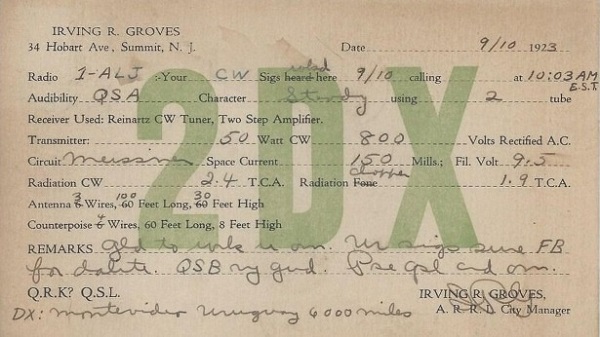 IRVING R. GROVES
34 Hobart Ave, Summit, N. J. Date 9/10 1923
Radio 1-ALJ :-Your CW Sigs heard wkd here 9/10 calling at 10:03 AM E.S.T.
Audibility QSA Character Steady using 2 tube
Receiver Used: Reinartz CW Tuner, Two Step Amplifier.
Transmitter: 50 Watt CW 800 Volts Rectified A.C.
Circuit Meissner Space Current 150 Mills.; Fil. Volt 9.5
Radiation CW 2.4 T.C.A. Radiation Fone chopper 1.9 T.C.A.
Antenna 6 3 Wires, 60 100 Feet Long, 60 30 Feet High
Counterpoise 6 Wires, 60 Feet Long, 8 Feet High
REMARKS Gld to wrk u om. Ur sigs sure FB
for dalite. QSB vy gud. Pse qsl crd om.
Q.R.K? Q.S.L. IRVING R. GROVES,
DX: Montevideo Uruguay 6000 miles A. R. R. L. City Manager
2DX